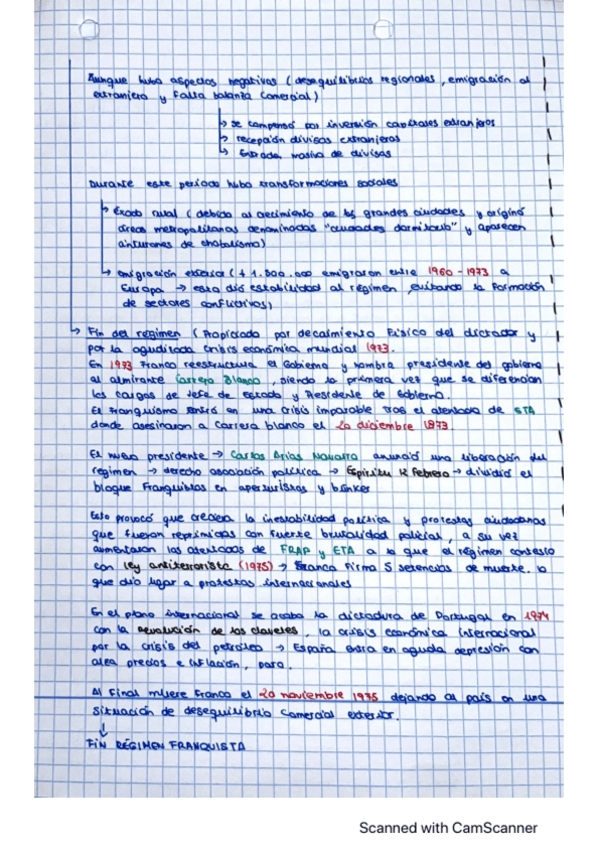 Aunque hubo aspectos negativos (desequilibrios regionales, emigración al
extranjero y falta balanza comercial)
↳ se compensó por inversión capitales extranjeros
↳ recepción divisas extranjeros
↳ Entrada masiva de divisas
Durante este período hubo transformaciones sociales
↳ Éxodo rural (debido al crecimiento de las grandes ciudades y originó
áreas metropolitanas denominadas "ciudades dormitorio" y aparecen
cinturones de chabolismo)
↳ emigración exterior (+ 1.000.000 emigraron entre 1960-1973 a
Europa → esto dió estabilidad al régimen, evitando la formación
de sectores conflictivos)
↳ Fin del régimen (Propiciado por decaimiento físico del dictador y
por la agudizada crisis económica mundial 1973.
En 1973 Franco reestructura el Gobierno y nombra presidente del gobierno
al almirante Carrero Blanco, siendo la primera vez que se diferencian
los cargos de Jefe de Estado y Presidente de Gobierno.
El franquismo entró en una crisis imparable tras el atentado de ETA
donde asesinaron a Carrera blanco el 20 diciembre 1873.
El nuevo presidente → Carlos Arias Navarra anunció una liberación del
régimen → derecho asociación política → Espíritu 12 febrero → dividió el
bloque franquistas en aperturistas y búnker
Esto provocó que creciera la inestabilidad política y protestas ciudadanas
que fueron reprimidas con fuerte brutalidad policial, a su vez
aumentaron los atentados de FRAP y ETA a lo que el régimen contestó
con ley antiterrorista (1975) → Franco firma 5 setencias de muerte. lo
que dio lugar a protestas internacionales
En el plano internacional se acaba la dictadura de Portugal en 1974
con la revolución de los claveles, la crisis económica internacional
por la crisis del petróleo → España entra en aguda depresión con
alza precios e inflación, paro.
Al final muere Franco el 20 noviembre 1975 dejando al país en una
situación de desequilibrio comercial exterior.
↓
FIN RÉGIMEN FRANQUISTA
Scanned with CamScanner